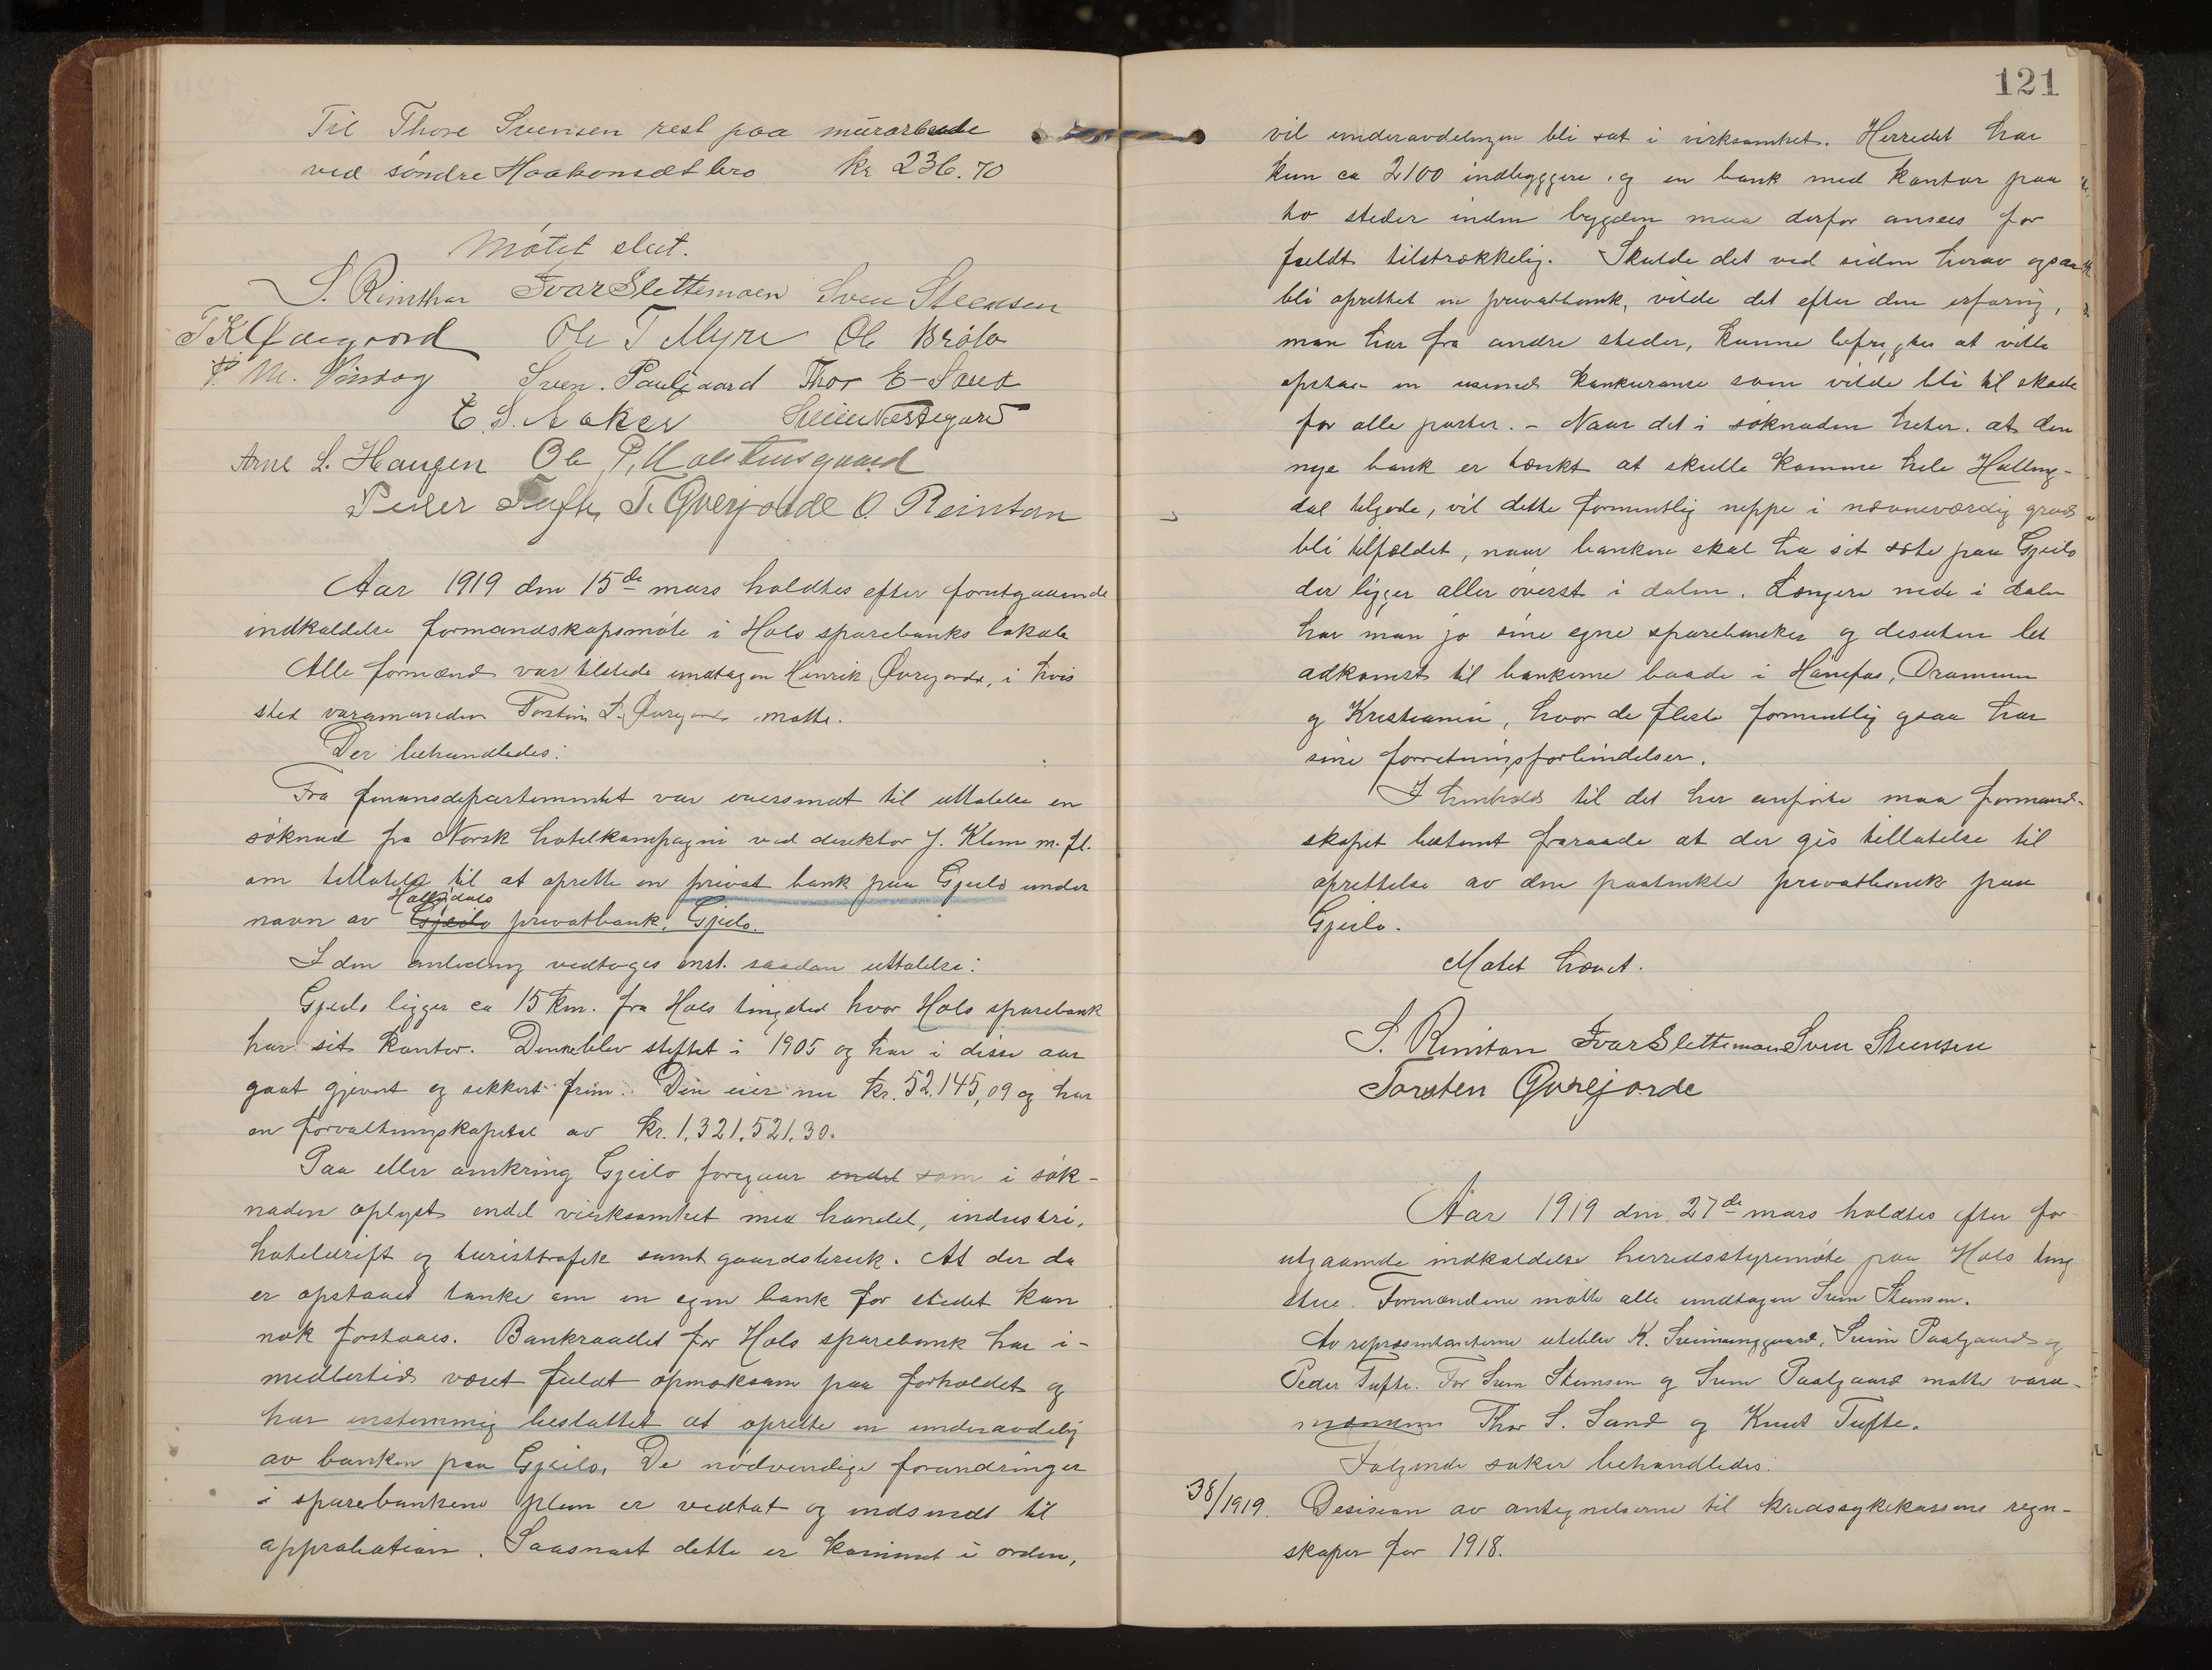 Til Thore Svensen rest paa murarbeide
ved søndre Haakonsæt bro kr 236.70
Møtet slut.
S. Rinthan Ivar Slettemoen Sven Steensen
T K Ødegaard Ole T Myre Ole Brøto
Sven. Paulgaard Thor E Sand
E. S. Aaker Svein Nestegard
Arne L. Haugen Ole P.
Peder Tufte, T. Qverjorde O. Reinton
Aar 1919 den 15de mars holdtes efter forutgaaende
indkaldelse formandskapsmøte i Hols sparebanks lokale
Alle formænd var tilstede undtagen Henrik Øvrejorde, i hvis
sted varamanden Torstein L. Øvrejorde møtte.
Der behandledes:
Fra finansdepartementet var oversendt til uttalelse en
søknad fra Norsk hotelkompagni ved direktør J. Klem m. fl.
om tillatelse til at oprette en privat bank paa Gjeilo under
Hallingdals
navn av Gjeilo privatbank, Gjeilo.
I den anledning vedtoges enst. saadan uttalelse:
Gjeilo ligger ca 15 km. fra Hols tingsted hvor Hols sparebank
har sit kontor. Denne blev stiftet i 1905 og har i disse aar
gaat gjevnt og sikkert frem. Den eier nu kr. 52.145,09 og har
en forvaltningskapital av kr. 1.321.521.30.
Paa eller omkring Gjeilo foregaar endel som i søk-
naden oplyst endel virksomhet med handel, industri,
hoteldrift og turisttrafik samt gaardsbruk. At der da
er opstaaet tanke om en egen bank for stedet kan
nok forstaaes. Bankraadet for Hols sparebank har i-
midlertid været fuldt opmerksom paa forholdet og
har enstemmig besluttet at oprette en underavdeling
av banken paa Gjeilo. De nødvendige forandringer
i sparebankens plan er vedtat og indsendt til
approbation. Saasnart dette er kommet i orden,
121
vil underavdelingen bli sat i virksomhet. Herredet har
kun ca 2100 indbyggere og en bank med kontor paa
to steder inden bygden maa derfor ansees for
fuldt tilstrækkelig. Skulde det ved siden herav ogsaa
bli oprettet en privatbank, vilde det efter den erfaring,
man har fra andre steder, kunne befrygtes at ville
opstaa en usund konkuranse som vilde bli til skade
for alle parter. - Naar det i søknaden heter. at den
nye bank er tænkt at skulle komme hele Halling-
dal tilgode, vil dette formentlig neppe i nævneværdig grad
bli tilfældet, naar banken skal ha sit sæte paa Gjeilo
der ligger aller øverst i dalen. Længere nede i dalen
har man jo sine egne sparebanker og desuten let
adkomst til bankerne baade i Hønefos, Drammen
og Kristiania, hvor de fleste formentlig gsaa har
sine forretningsforbindelser.
I henhold til det her anførte maa formand-
skapet bestemt fraraade at der gis tillatelse til
oprettelse av den paatænkte privatbank paa
Gjeilo.
Møtet hævet.
S. Rinton Ivar Slettemoen Sven Steensen
Torsten Qvrejorde
Aar 1919 den 27de mars holdtes efter for-
utgaaende indkaldelse herredsstyremøte paa Hols ting
stue. Formændene møtte alle undtagen Sven Stensen.
Av repræsentanterne uteblev K. Sveinunggaard, Svein Paalgaard og
Peder Tufte. For Sven Stensen og Svein Paalgaard møtte vara-
mændene Thor S. Sand og Knut Tufte.
Følgende saker behandledes:
38/1919. Desision av antegnelserne til kredssykekassens regn-
skaper for 1918.